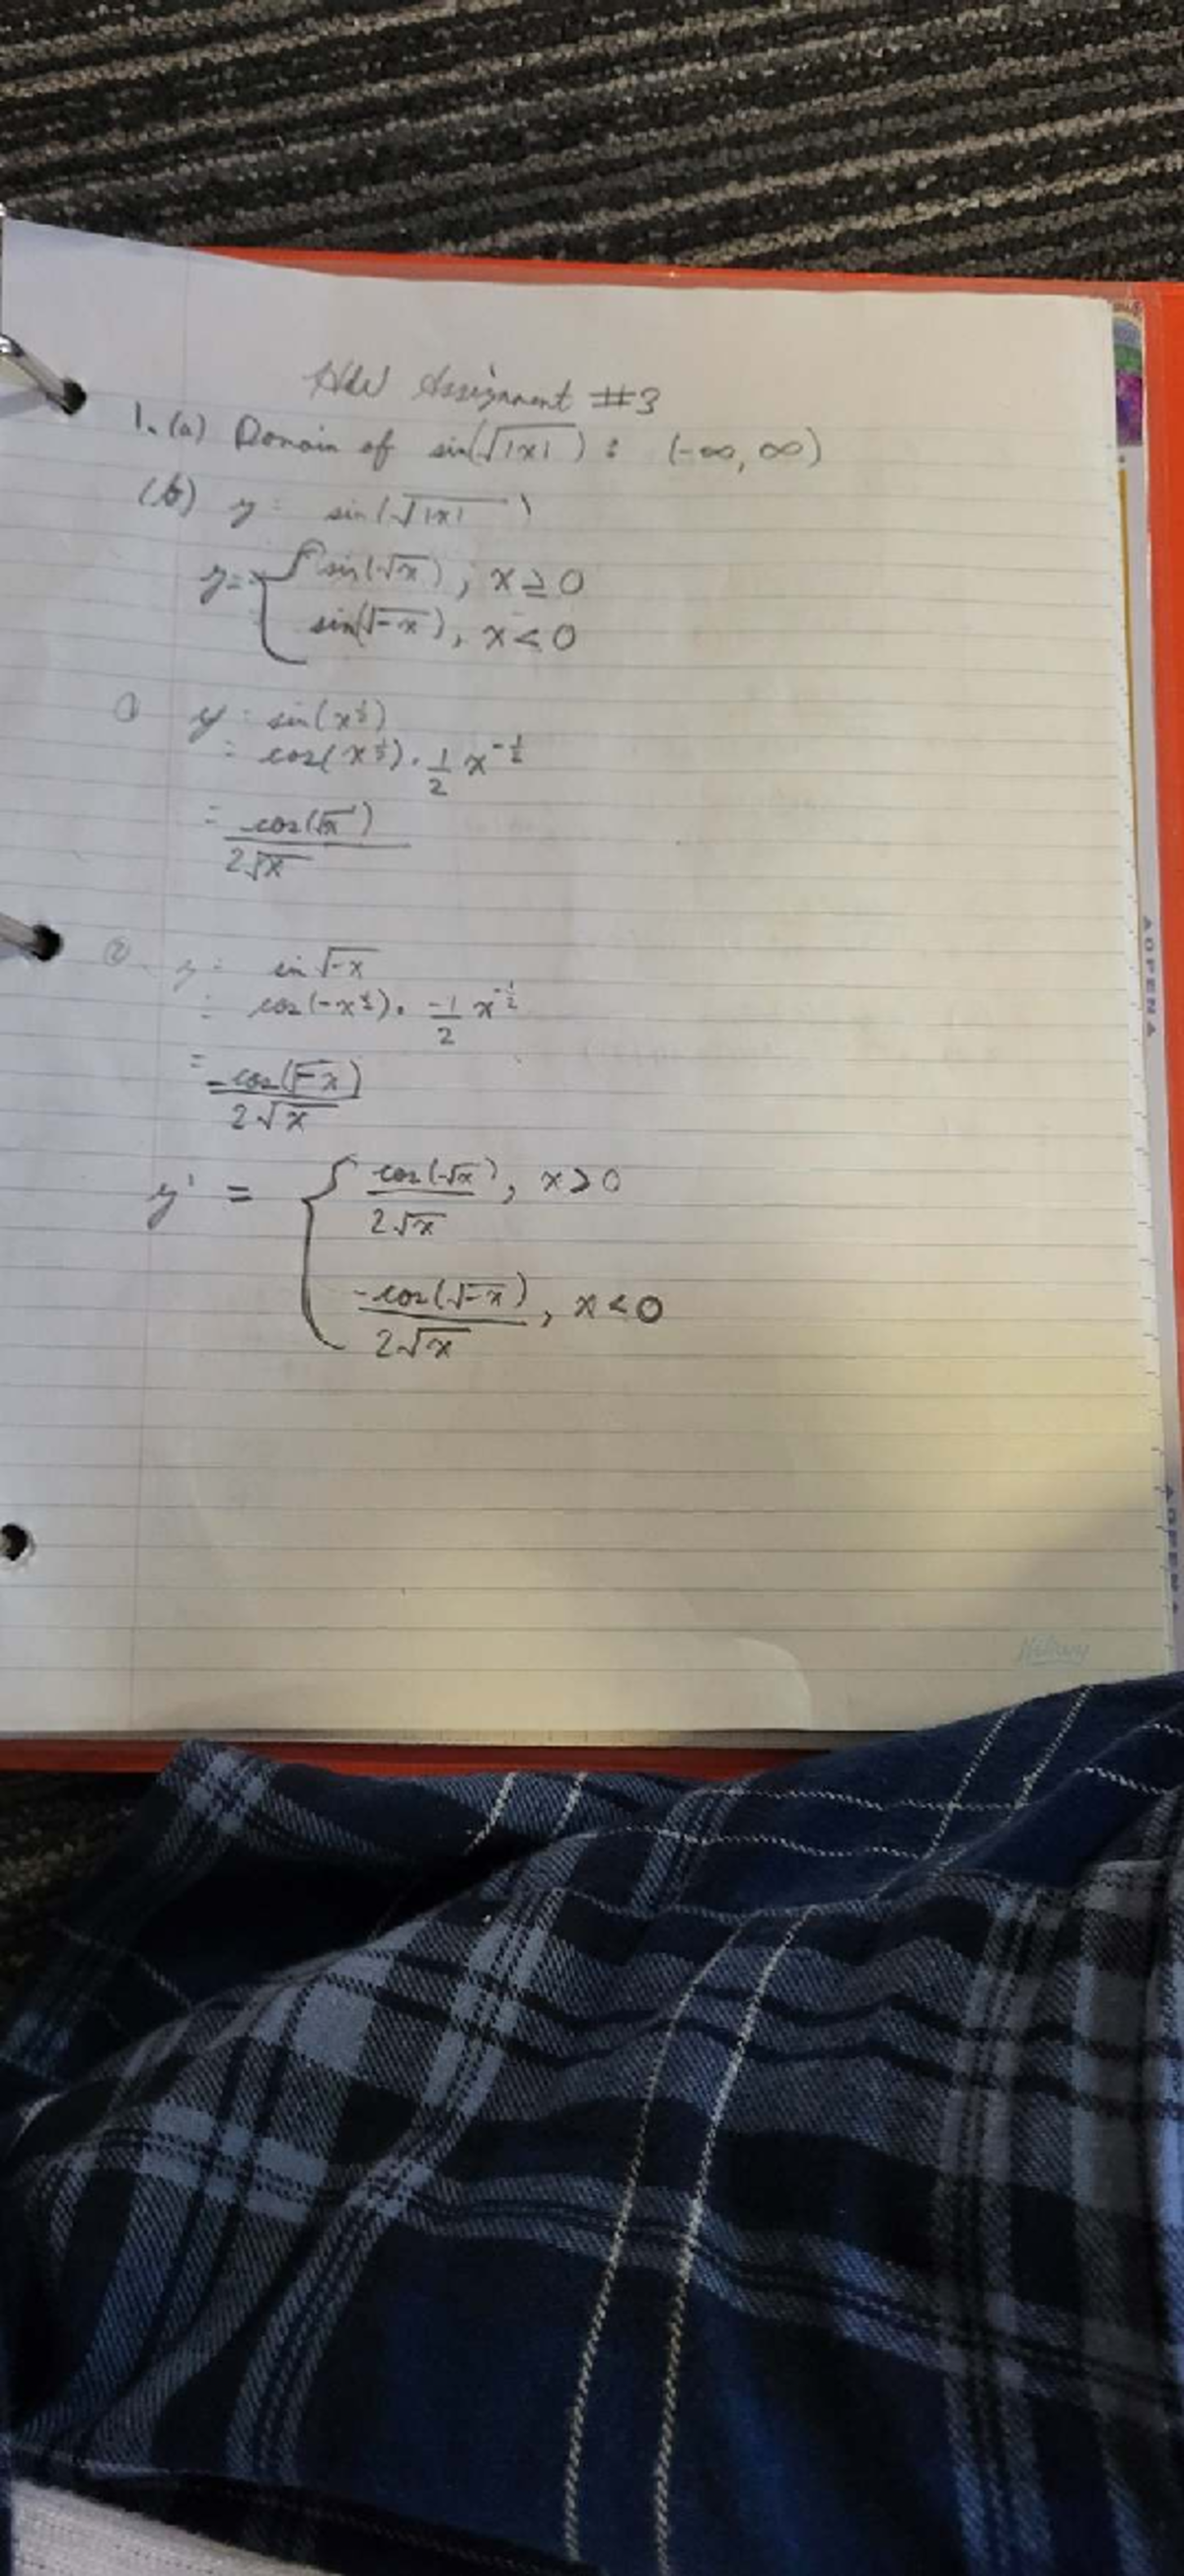 HW Assignment #3
1. (a) Domain of sin(√|x|) : (-∞, ∞)
(b) y = sin(√|x|)
y = { sin(√x), x ≥ 0
sin(√-x), x < 0
① y = sin(x^½)
= cos(x^½) · 1/2 x^-½
= cos(√x)
2√x
② y = sin √-x
= cos(-x^½) · -1/2 x^-½
= -cos(√-x)
2√x
y' = { cos(√x)/2√x, x > 0
-cos(√-x)/2√x, x < 0
Hilroy
OPEN
OPEN